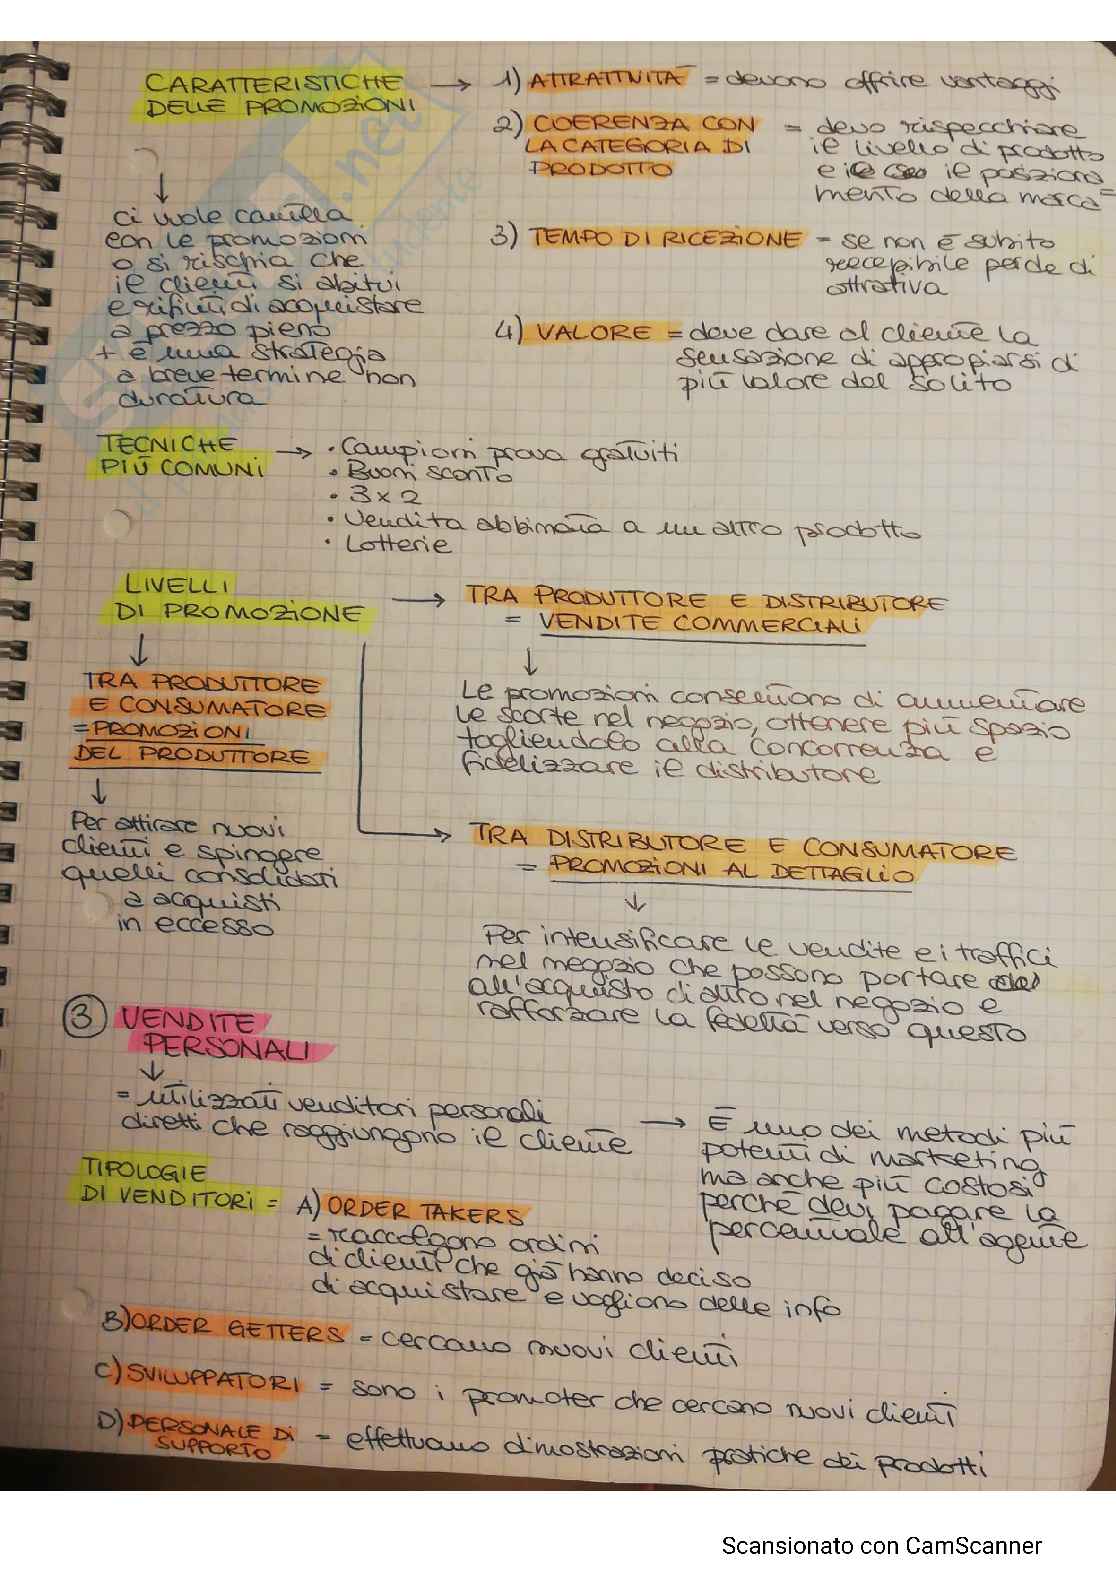 CARATTERISTICHE
DELLE PROMOZIONI
→ 1) ATTRATTIVITÀ = devono offrire vantaggi
2) COERENZA CON
LA CATEGORIA DI
PRODOTTO
= devo rispecchiare
il livello di prodotto
e il posiziona
mento della marca
ci vuole cautela
con le promozioni
o si rischia che
il clienti si abitui
e rifiuti di acquistare
a prezzo pieno
+ è una strategia
a breve termine non
duratura
3) TEMPO DI RICEZIONE = se non è subito
recepibile perde di
attrativa
4) VALORE = deve dare al cliente la
sensazione di appropiarsi di
più valore del solito
TECNICHE
PIÙ COMUNI
→ • Campioni prova gratuiti
• Buoni sconto
• 3 x 2
• Vendita abbinata a un altro prodotto
• Lotterie
LIVELLI
DI PROMOZIONE
→ TRA PRODUTTORE E DISTRIBUTORE
= VENDITE COMMERCIALI
↓
Le promozioni consentono di aumentare
le scorte nel negozio, ottenere più spazio
togliendolo alla concorrenza e
fidelizzare il distributore
↓
TRA PRODUTTORE
E CONSUMATORE
= PROMOZIONI
DEL PRODUTTORE
↓
Per attirare nuovi
clienti e spingere
quelli consolidati
a acquisti
in eccesso
→ TRA DISTRIBUTORE E CONSUMATORE
= PROMOZIONI AL DETTAGLIO
↓
Per intensificare le vendite e i traffici
nel negozio che possono portare
all'acquisto di altro nel negozio e
rafforzare la fedeltà verso questo
3 VENDITE
PERSONALI
↓
= utilizzati venditori personali
diretti che raggiungono il cliente
→ È uno dei metodi più
potenti di marketing
ma anche più costosi
perché devi pagare la
percentuale all'agente
TIPOLOGIE
DI VENDITORI = A) ORDER TAKERS
= raccolgono ordini
di clienti che già hanno deciso
di acquistare e vogliono delle info
B) ORDER GETTERS = cercano nuovi clienti
C) SVILUPPATORI = sono i promoter che cercano nuovi clienti
D) PERSONALE DI
SUPPORTO
= effettuano dimostrazioni pratiche dei prodotti
Scansionato con CamScanner